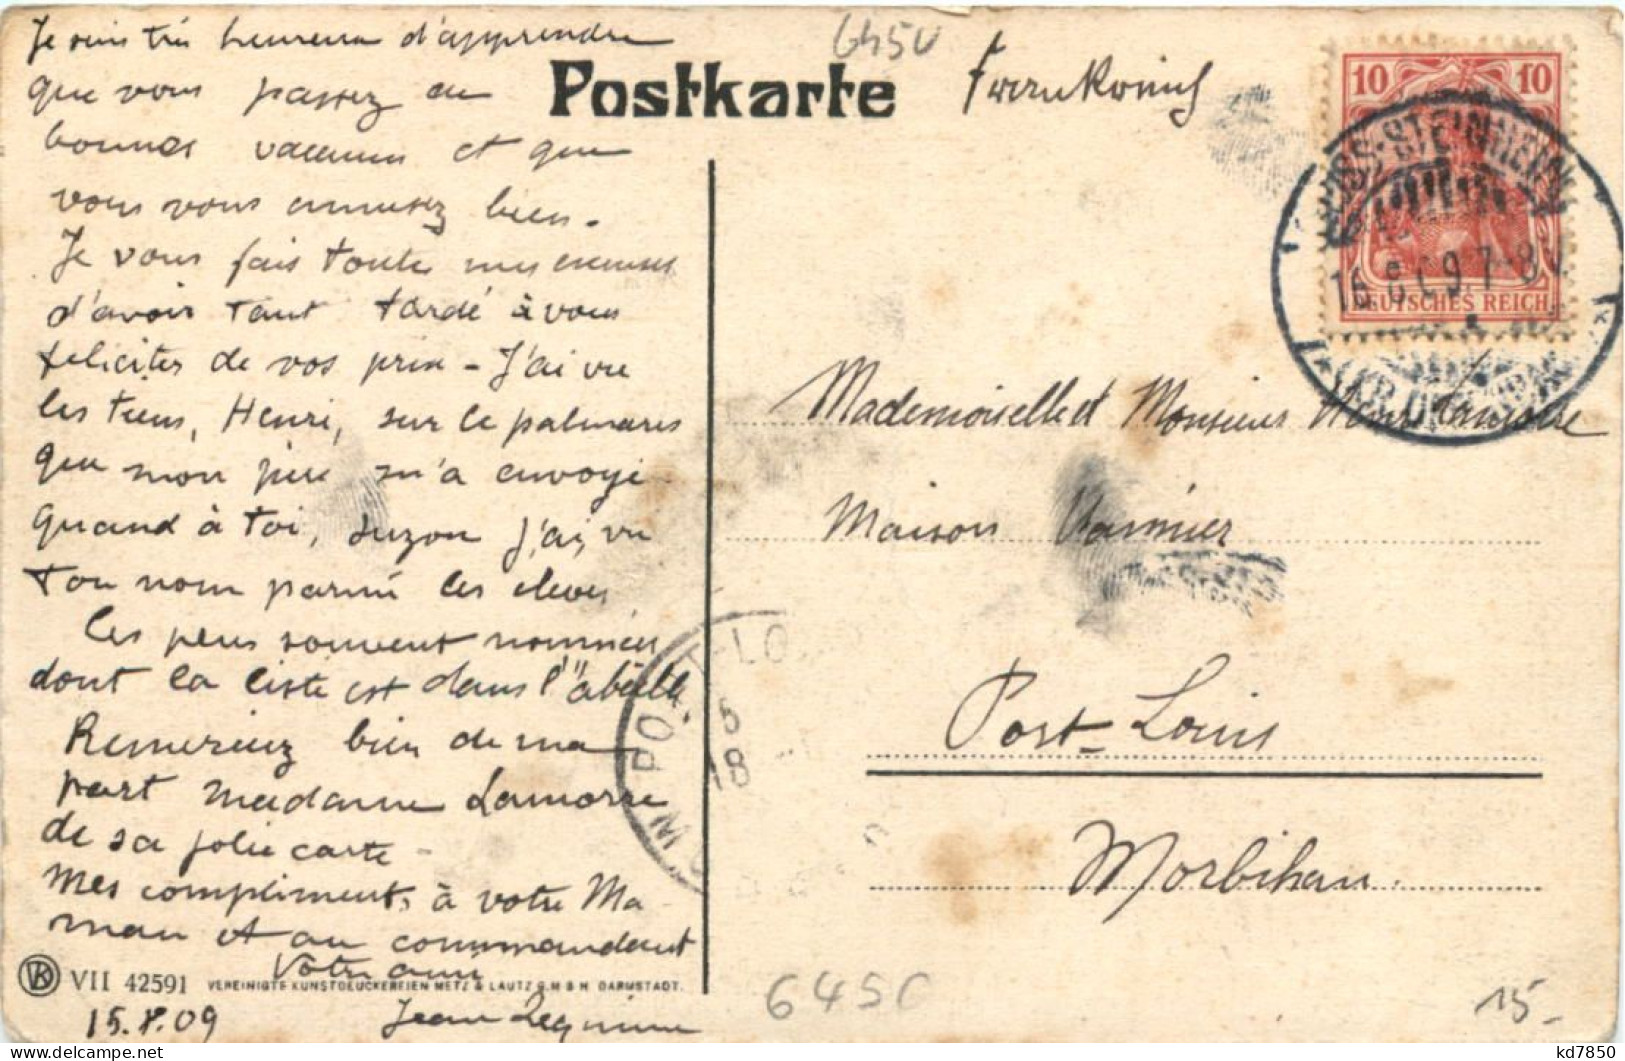 Je suis très heureux d'apprendre
que vous passez de
bonnes vacances et que
vous vous amusez bien.
Je vous fais toutes mes excuses
d'avoir tant tardé à vous
féliciter de vos prix - J'ai vu
les tiens, Henri, sur le palmares
que mon père m'a envoyé
Quand à toi, Suzon j'ai vu
ton nom parmi les eleves
les plus souvent nommées
dont la liste est dans l'"abeille".
Remerciez bien de ma
part madame Lamorre
de sa jolie carte -
Mes compliments à votre Ma
man et au commandant
Votre ami
Jean
15.8.09
VII 42591 VEREINIGTE KUNSTDRUCKEREIEN METZ & LAUTZ G.M.B.H. DARMSTADT.
6450
Postkarte
Frankreich
10 10
DEUTSCHES REICH
GROSS-STEINHEIM
16.8.09 7-8V
Mademoiselle et Monsieur Henri Lamorre
Maison
Port-Louis
Morbihan
PORT-LO
6
18
6450
15-
kd7850